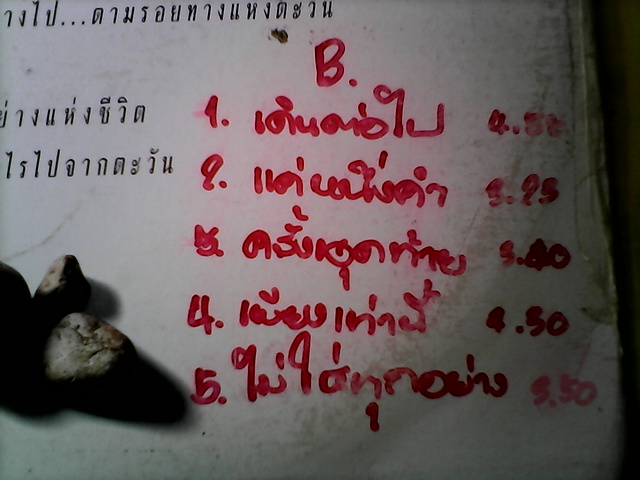 างไป...ตามรอยทางแห่งตะวัน
B.
ย่างแห่งชีวิต
1. เดินต่อไป
ไรไปจากตะวัน
2. แค่หนึ่งคำ 3.25
3. ครั้งสุดท้าย 3.40
4. เพียงเท่านี้ 4.30
5. ไม่ใช่ทุกอย่าง 3.50